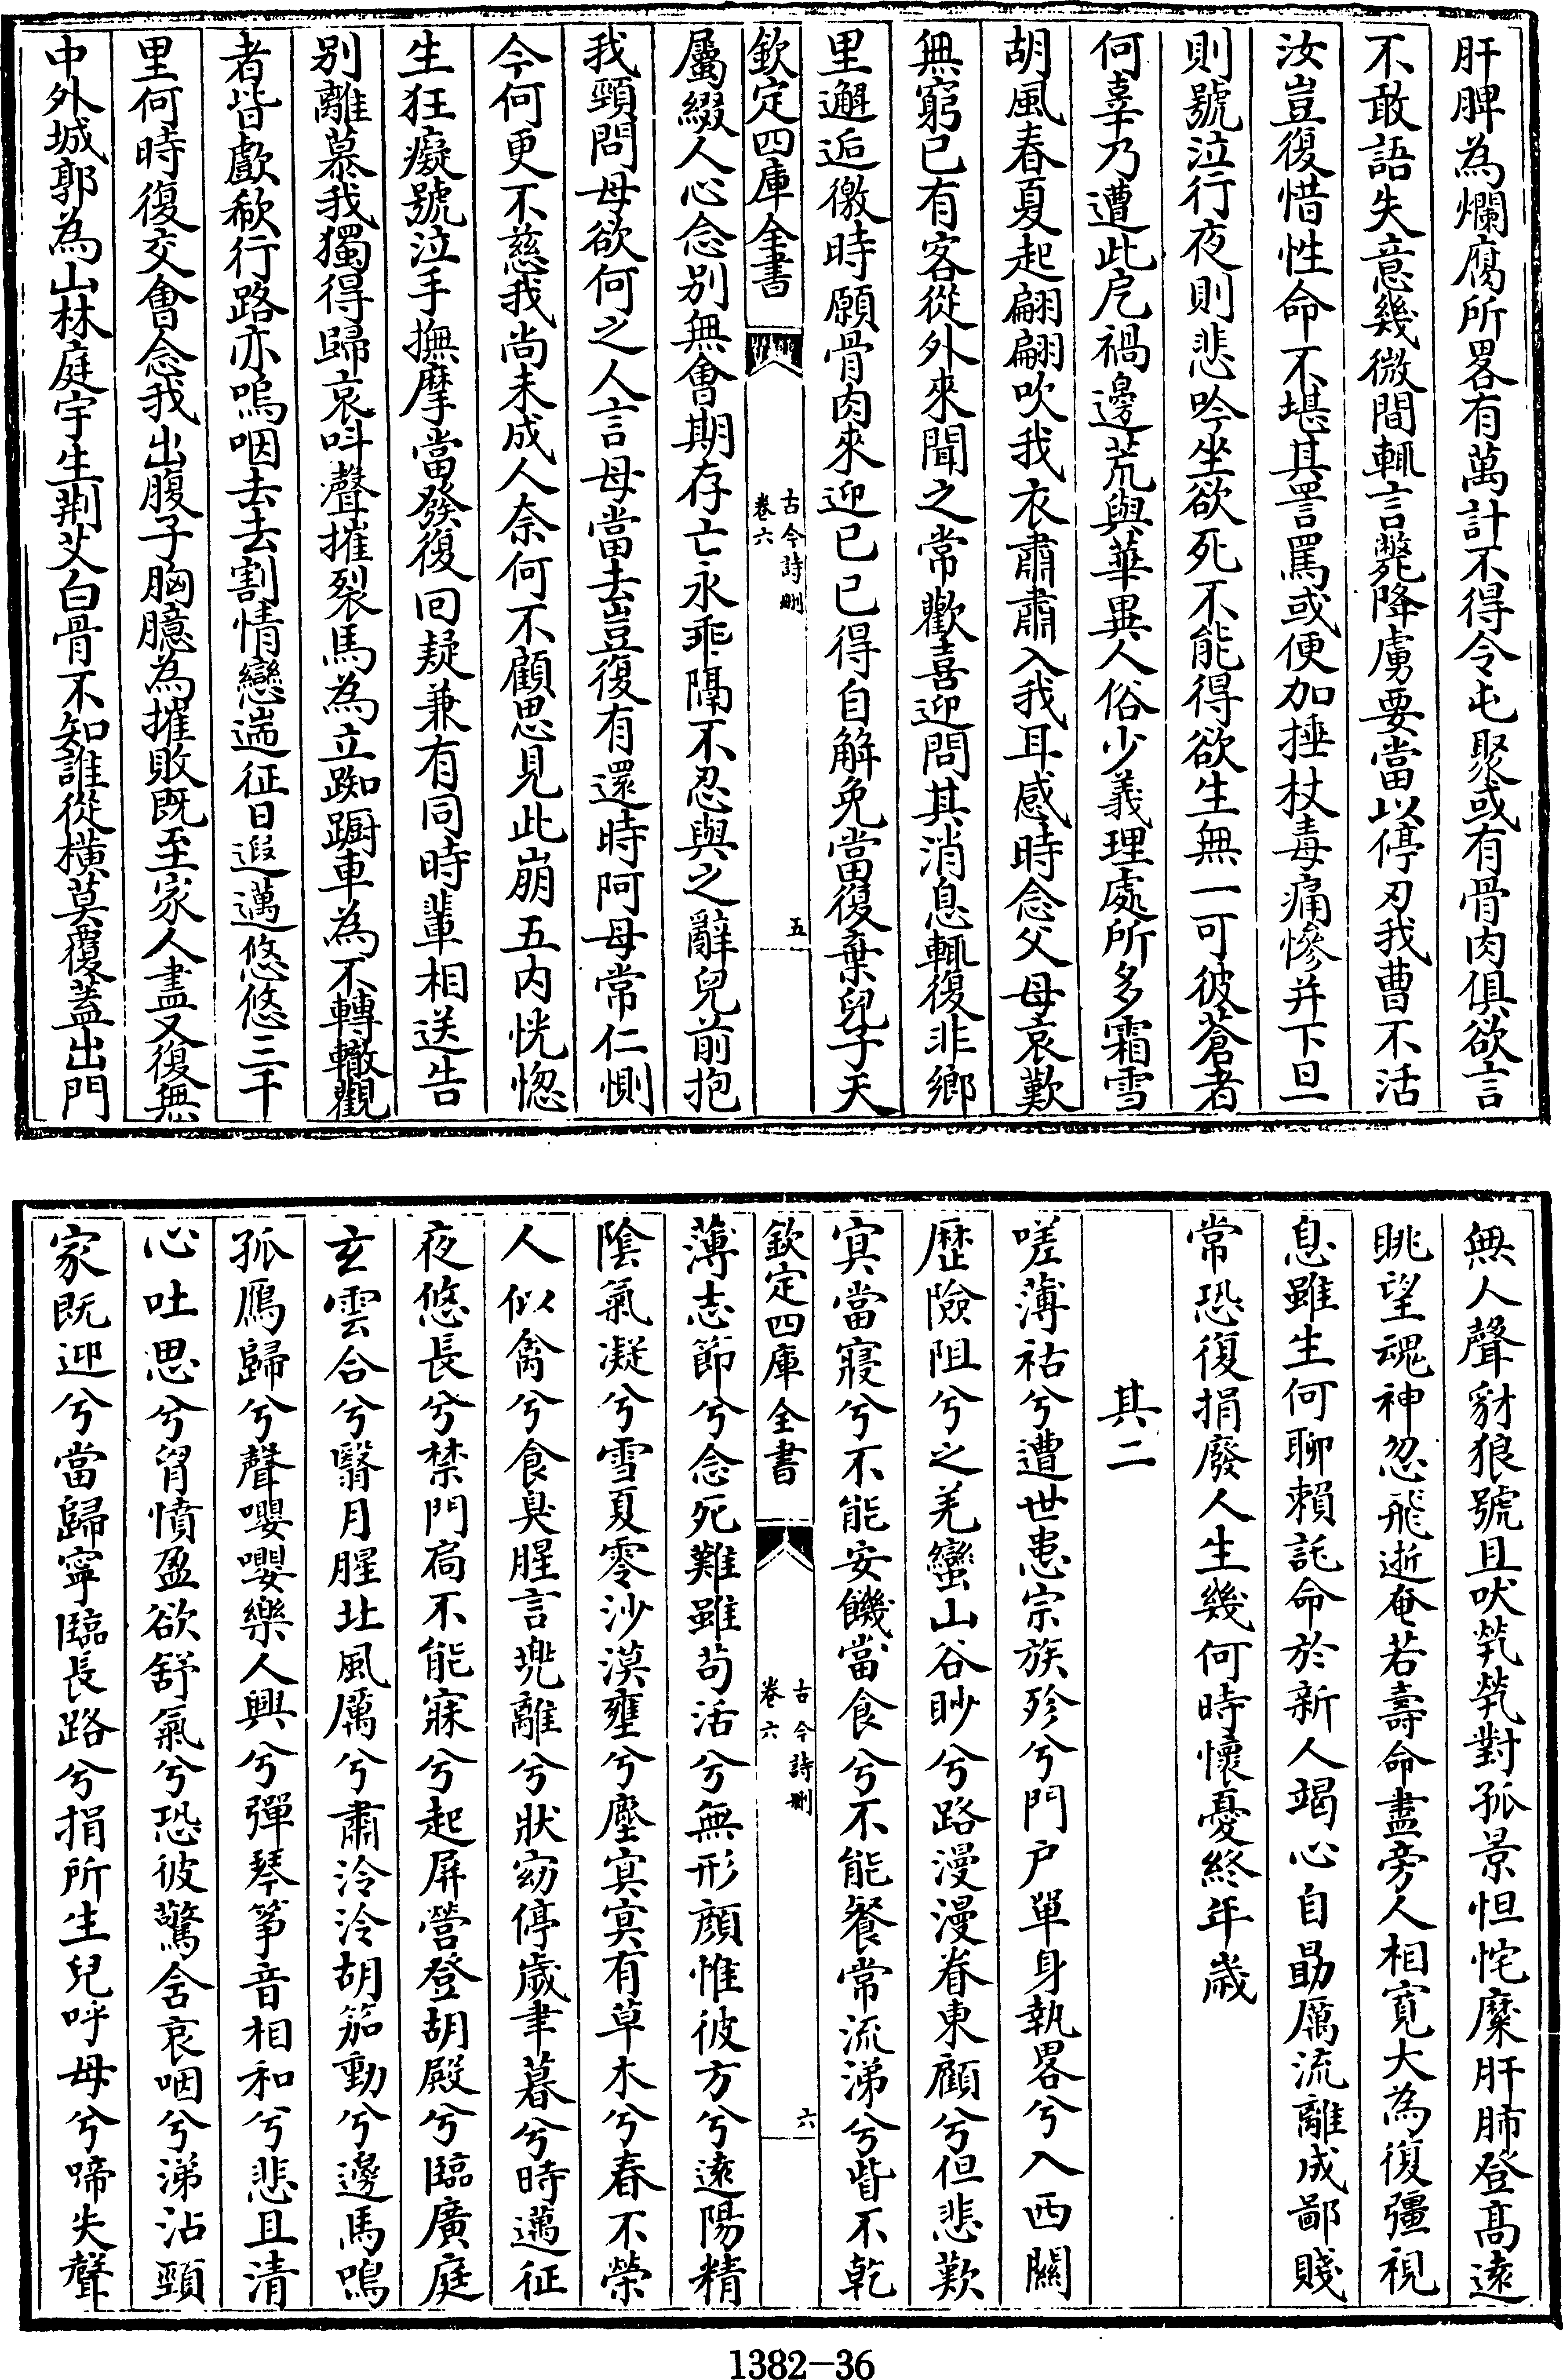 肝脾為爛腐所畧有萬計不得令屯聚或有骨肉俱欲言
不敢語失意幾微間輒言斃降虜要當以停刃我曹不活
汝豈復惜性命不堪其詈罵或便加捶杖毒痛慘并下旦
則號泣行夜則悲吟坐欲死不能得欲生無一可彼蒼者
何辜乃遭此戹禍邊荒與華異人俗少義理處所多霜雪
胡風春夏起翩翩吹我衣肅肅入我耳感時念父母哀歎
無窮已有客從外來聞之常歡喜迎問其消息輒復非鄉
里邂逅徼時願骨肉來迎已已得自解免當復棄兒子天
欽定四庫全書
古今詩刪
卷六
五
屬綴人心念別無會期存亡永乖隔不忍與之辭兒前抱
我頸問母欲何之人言母當去豈復有還時阿母常仁惻
今何更不慈我尚未成人奈何不顧思見此崩五內恍惚
生狂癡號泣手撫摩當發復回疑兼有同時輩相送告
別離慕我獨得歸哀呌聲摧裂馬為立踟蹰車為不轉轍觀
者皆歔欷行路亦嗚咽去去割情戀遄征日遐邁悠悠三千
里何時復交會念我出腹子胸臆為摧敗既至家人盡又復無
中外城郭為山林庭宇生荆艾白骨不知誰從橫莫覆蓋出門
無人聲豺狼號且吠煢煢對孤景怛咤糜肝肺登髙遠
眺望魂神忽飛逝奄若壽命盡旁人相寬大為復彊視
息雖生何聊賴託命於新人竭心自勗厲流離成鄙賤
常恐復捐廢人生幾何時懷憂終年歲
其二
嗟薄祜兮遭世患宗族殄兮門户單身執畧兮入西關
歷險阻兮之羌蠻山谷眇兮路漫漫眷東顧兮但悲歎
冥當寢兮不能安饑當食兮不能餐常流涕兮眥不乾
欽定四庫全書
古今詩刪
卷六
六
薄志節兮念死難雖苟活兮無形顏惟彼方兮遠陽精
陰氣凝兮雪夏零沙漠壅兮塵冥冥有草木兮春不榮
人似禽兮食臭腥言兠離兮狀窈停歲聿暮兮時邁征
夜悠長兮禁門扃不能寐兮起屏營登胡殿兮臨廣庭
玄雲合兮翳月腥北風厲兮肅泠泠胡笳動兮邊馬鳴
孤鴈歸兮聲嚶嚶樂人興兮彈琴箏音相和兮悲且清
心吐思兮胷憤盈欲舒氣兮恐彼驚含哀咽兮涕沾頸
家既迎兮當歸寧臨長路兮捐所生兒呼母兮啼失聲
1382-36